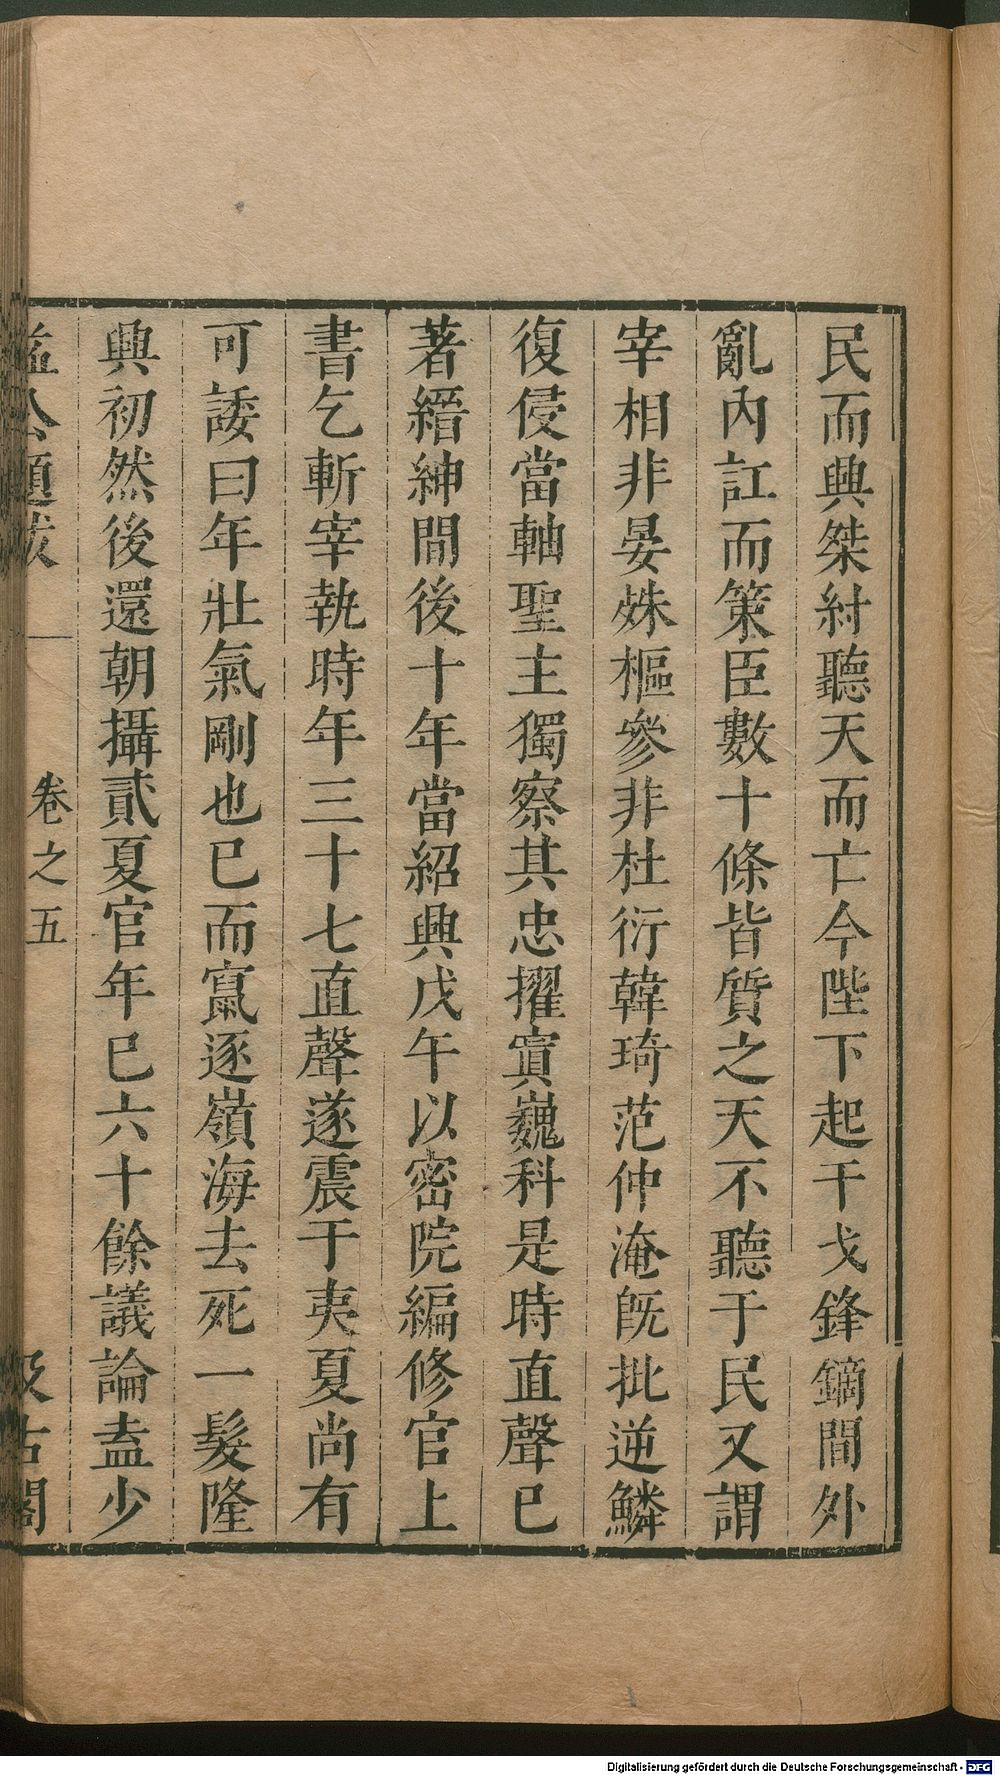 民而興桀紂聽天而亡今陛下起干戈鋒鏑間外
亂內訌而策臣數十條皆質之天不聽于民又謂
宰相非晏殊樞參非杜衍韓琦范仲淹旣批逆鱗
復侵當軸聖主獨察其忠擢寘巍科是時直聲已
著縉紳間後十年當紹興戊午以密院編修官上
書乞斬宰執時年三十七直聲遂震于夷夏尚有
可諉曰年壯氣剛也已而竄逐嶺海去死一髮隆
興初然後還朝攝貳夏官年已六十餘議論盍少
益公題跋 卷之五 汲古閣
Digitalisierung gefördert durch die Deutsche Forschungsgemeinschaft - DFG